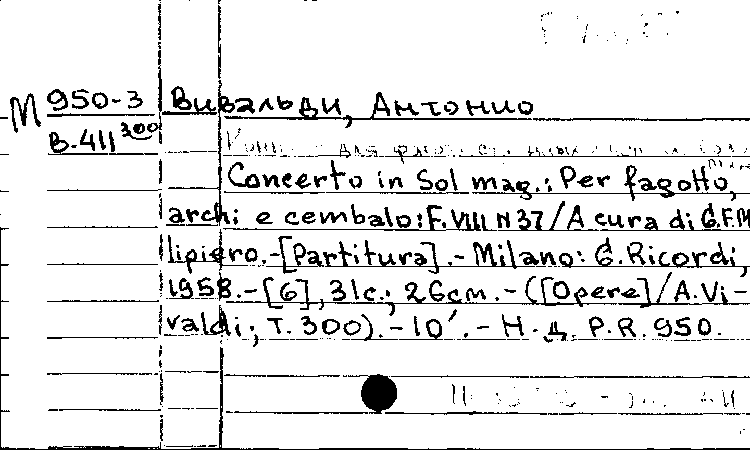 М 950-3 Вивальди, Антонио
В-411 300
для
Concerto in Sol mag.: Per fagotto,
archi e cembalo: F. VIII N 37 / A cura di G.F.M
lipiero.-[Partitura].- Milano: G. Ricordi,
1958.-[6], 31c.; 26cm.-([Opere]/A.Vi-
valdi; T. 300).-10'.- Н. д. P.R. 950.